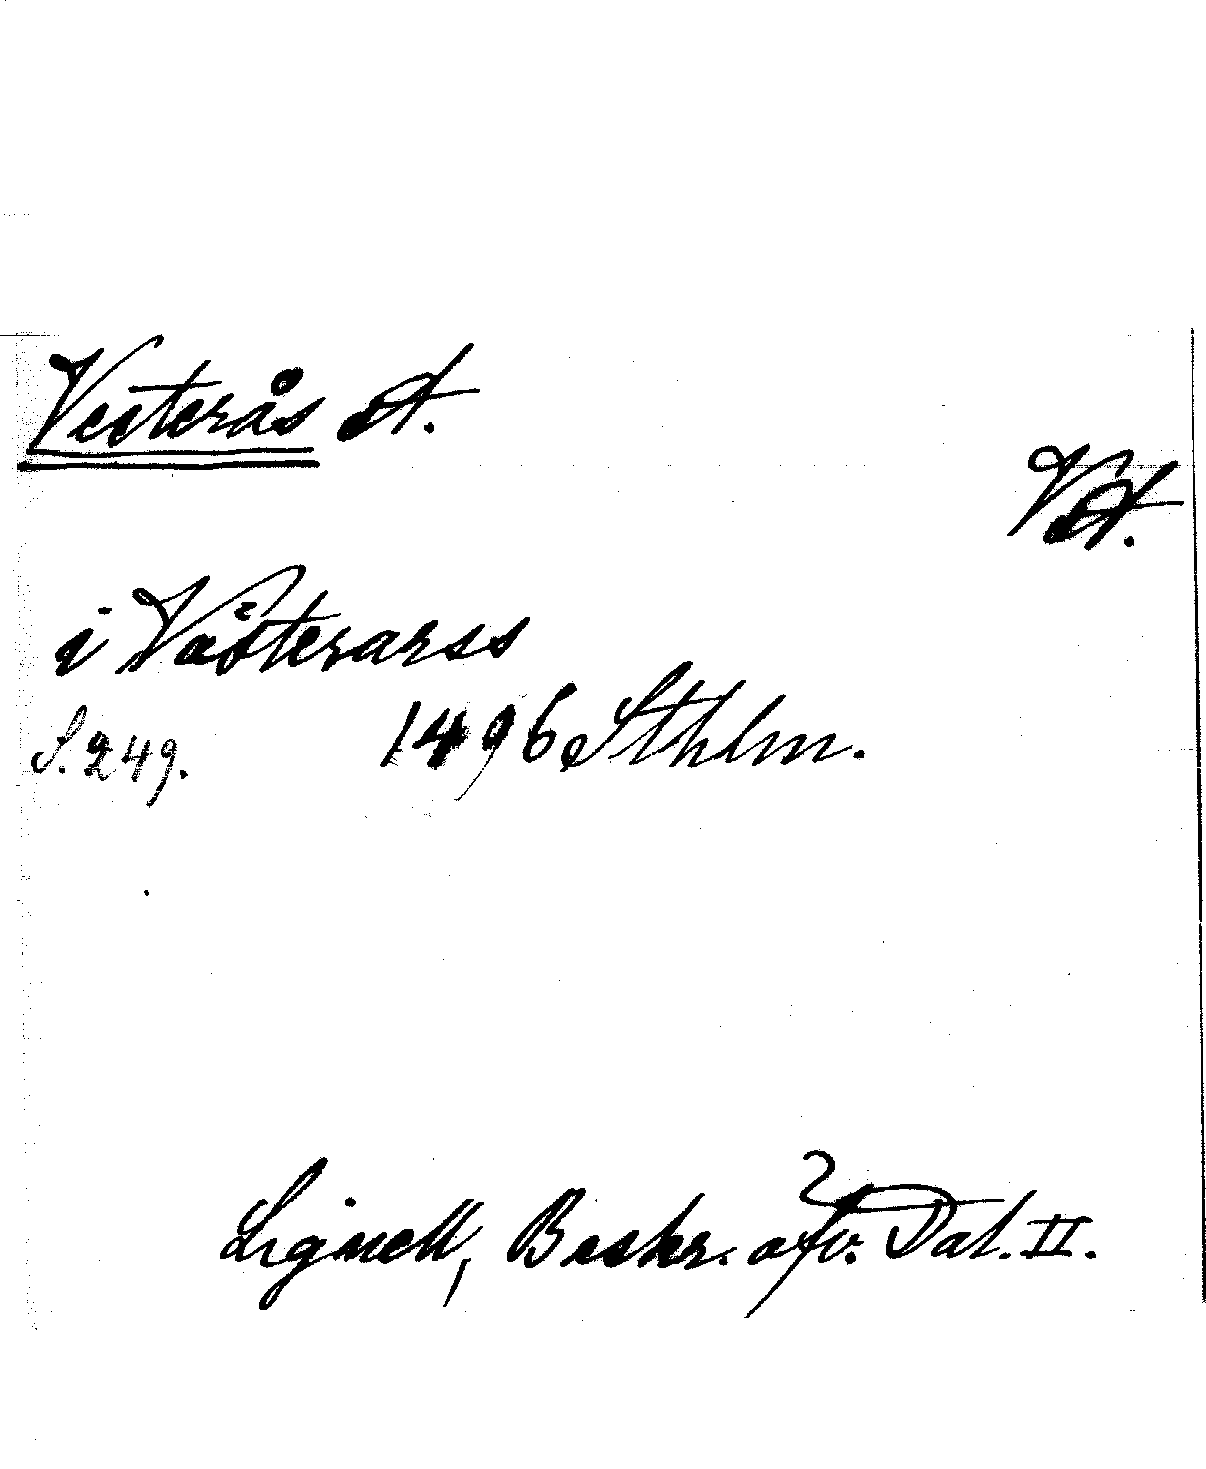 Vesterås st.
Vst.
i Västerarss
S. 249. 1496 Sthlm.
Lignell, Beskr. öfv. Dal. II.